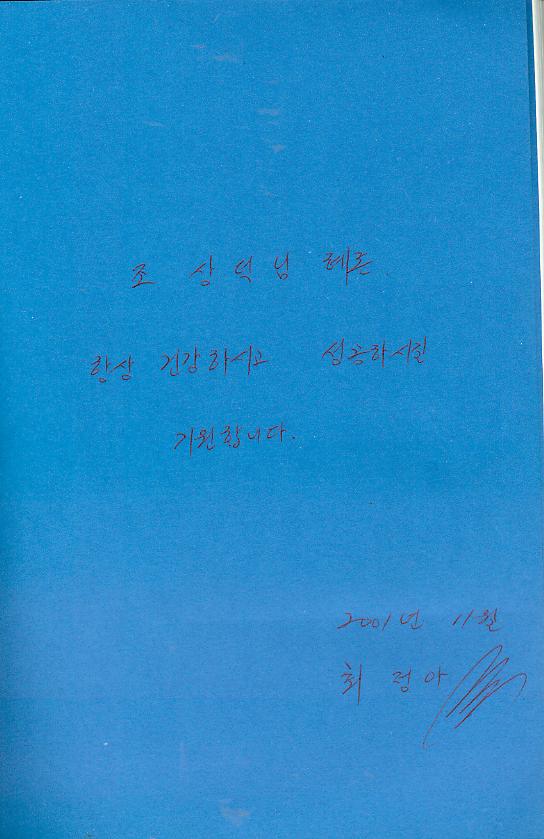 조 상덕님 혜존.
항상 건강하시고 성공하시길
기원합니다.
2001년 11월
최정아